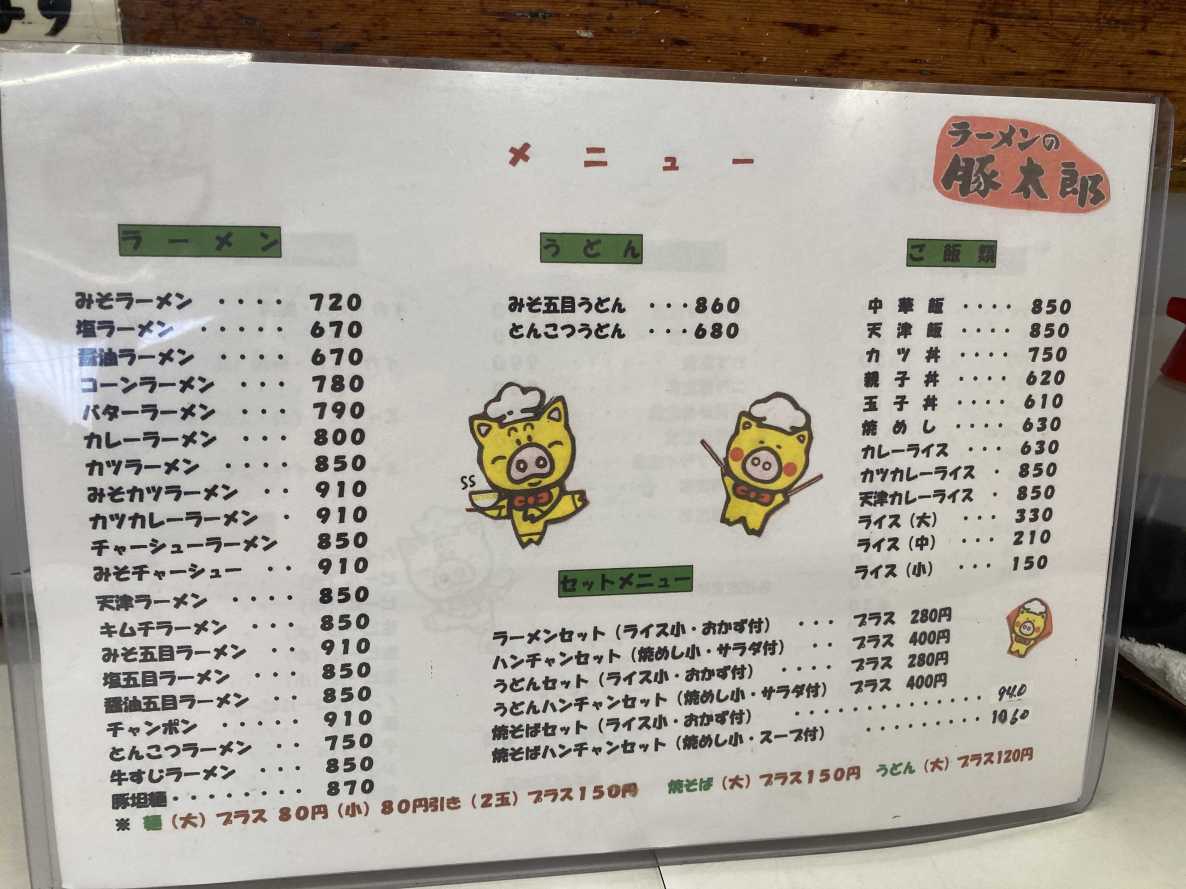 49
メニュー
ラーメンの
豚太郎
ラーメン
みそラーメン ････ 720
塩ラーメン ･････ 670
醤油ラーメン ････ 670
コーンラーメン ･･･ 780
バターラーメン ･･･ 790
カレーラーメン ･･･ 800
カツラーメン ････ 850
みそカツラーメン ･･ 910
カツカレーラーメン ･ 910
チャーシューラーメン 850
みそチャーシュー ･･ 910
天津ラーメン ････ 850
キムチラーメン ･･･ 850
みそ五目ラーメン ･･ 910
塩五目ラーメン ･･･ 850
醤油五目ラーメン ･･ 850
チャンポン ･････ 910
とんこつラーメン ･･ 750
牛すじラーメン ･･･ 850
豚坦麺････････ 870
うどん
みそ五目うどん ･･･860
とんこつうどん ･･･680
ご飯類
中華飯 ････ 850
天津飯 ････ 850
カツ丼 ････ 750
親子丼 ････ 620
玉子丼 ････ 610
焼めし ････ 630
カレーライス ･･･ 630
カツカレーライス ･ 850
天津カレーライス ･ 850
ライス（大） ･･･ 330
ライス（中） ･･･ 210
ライス（小） ･･･ 150
SS
セットメニュー
ラーメンセット（ライス小・おかず付） ･･･ プラス 280円
ハンチャンセット（焼めし小・サラダ付） ･･ プラス 400円
うどんセット（ライス小・おかず付） ････ プラス 280円
うどんハンチャンセット（焼めし小・サラダ付） プラス 400円
焼そばセット（ライス小・おかず付） ･････････････ 940
焼そばハンチャンセット（焼めし小・スープ付） ･････････ 1060
※ 麺（大）プラス 80円（小）80円引き（2玉）プラス150円 焼そば（大）プラス150円 うどん（大）プラス120円